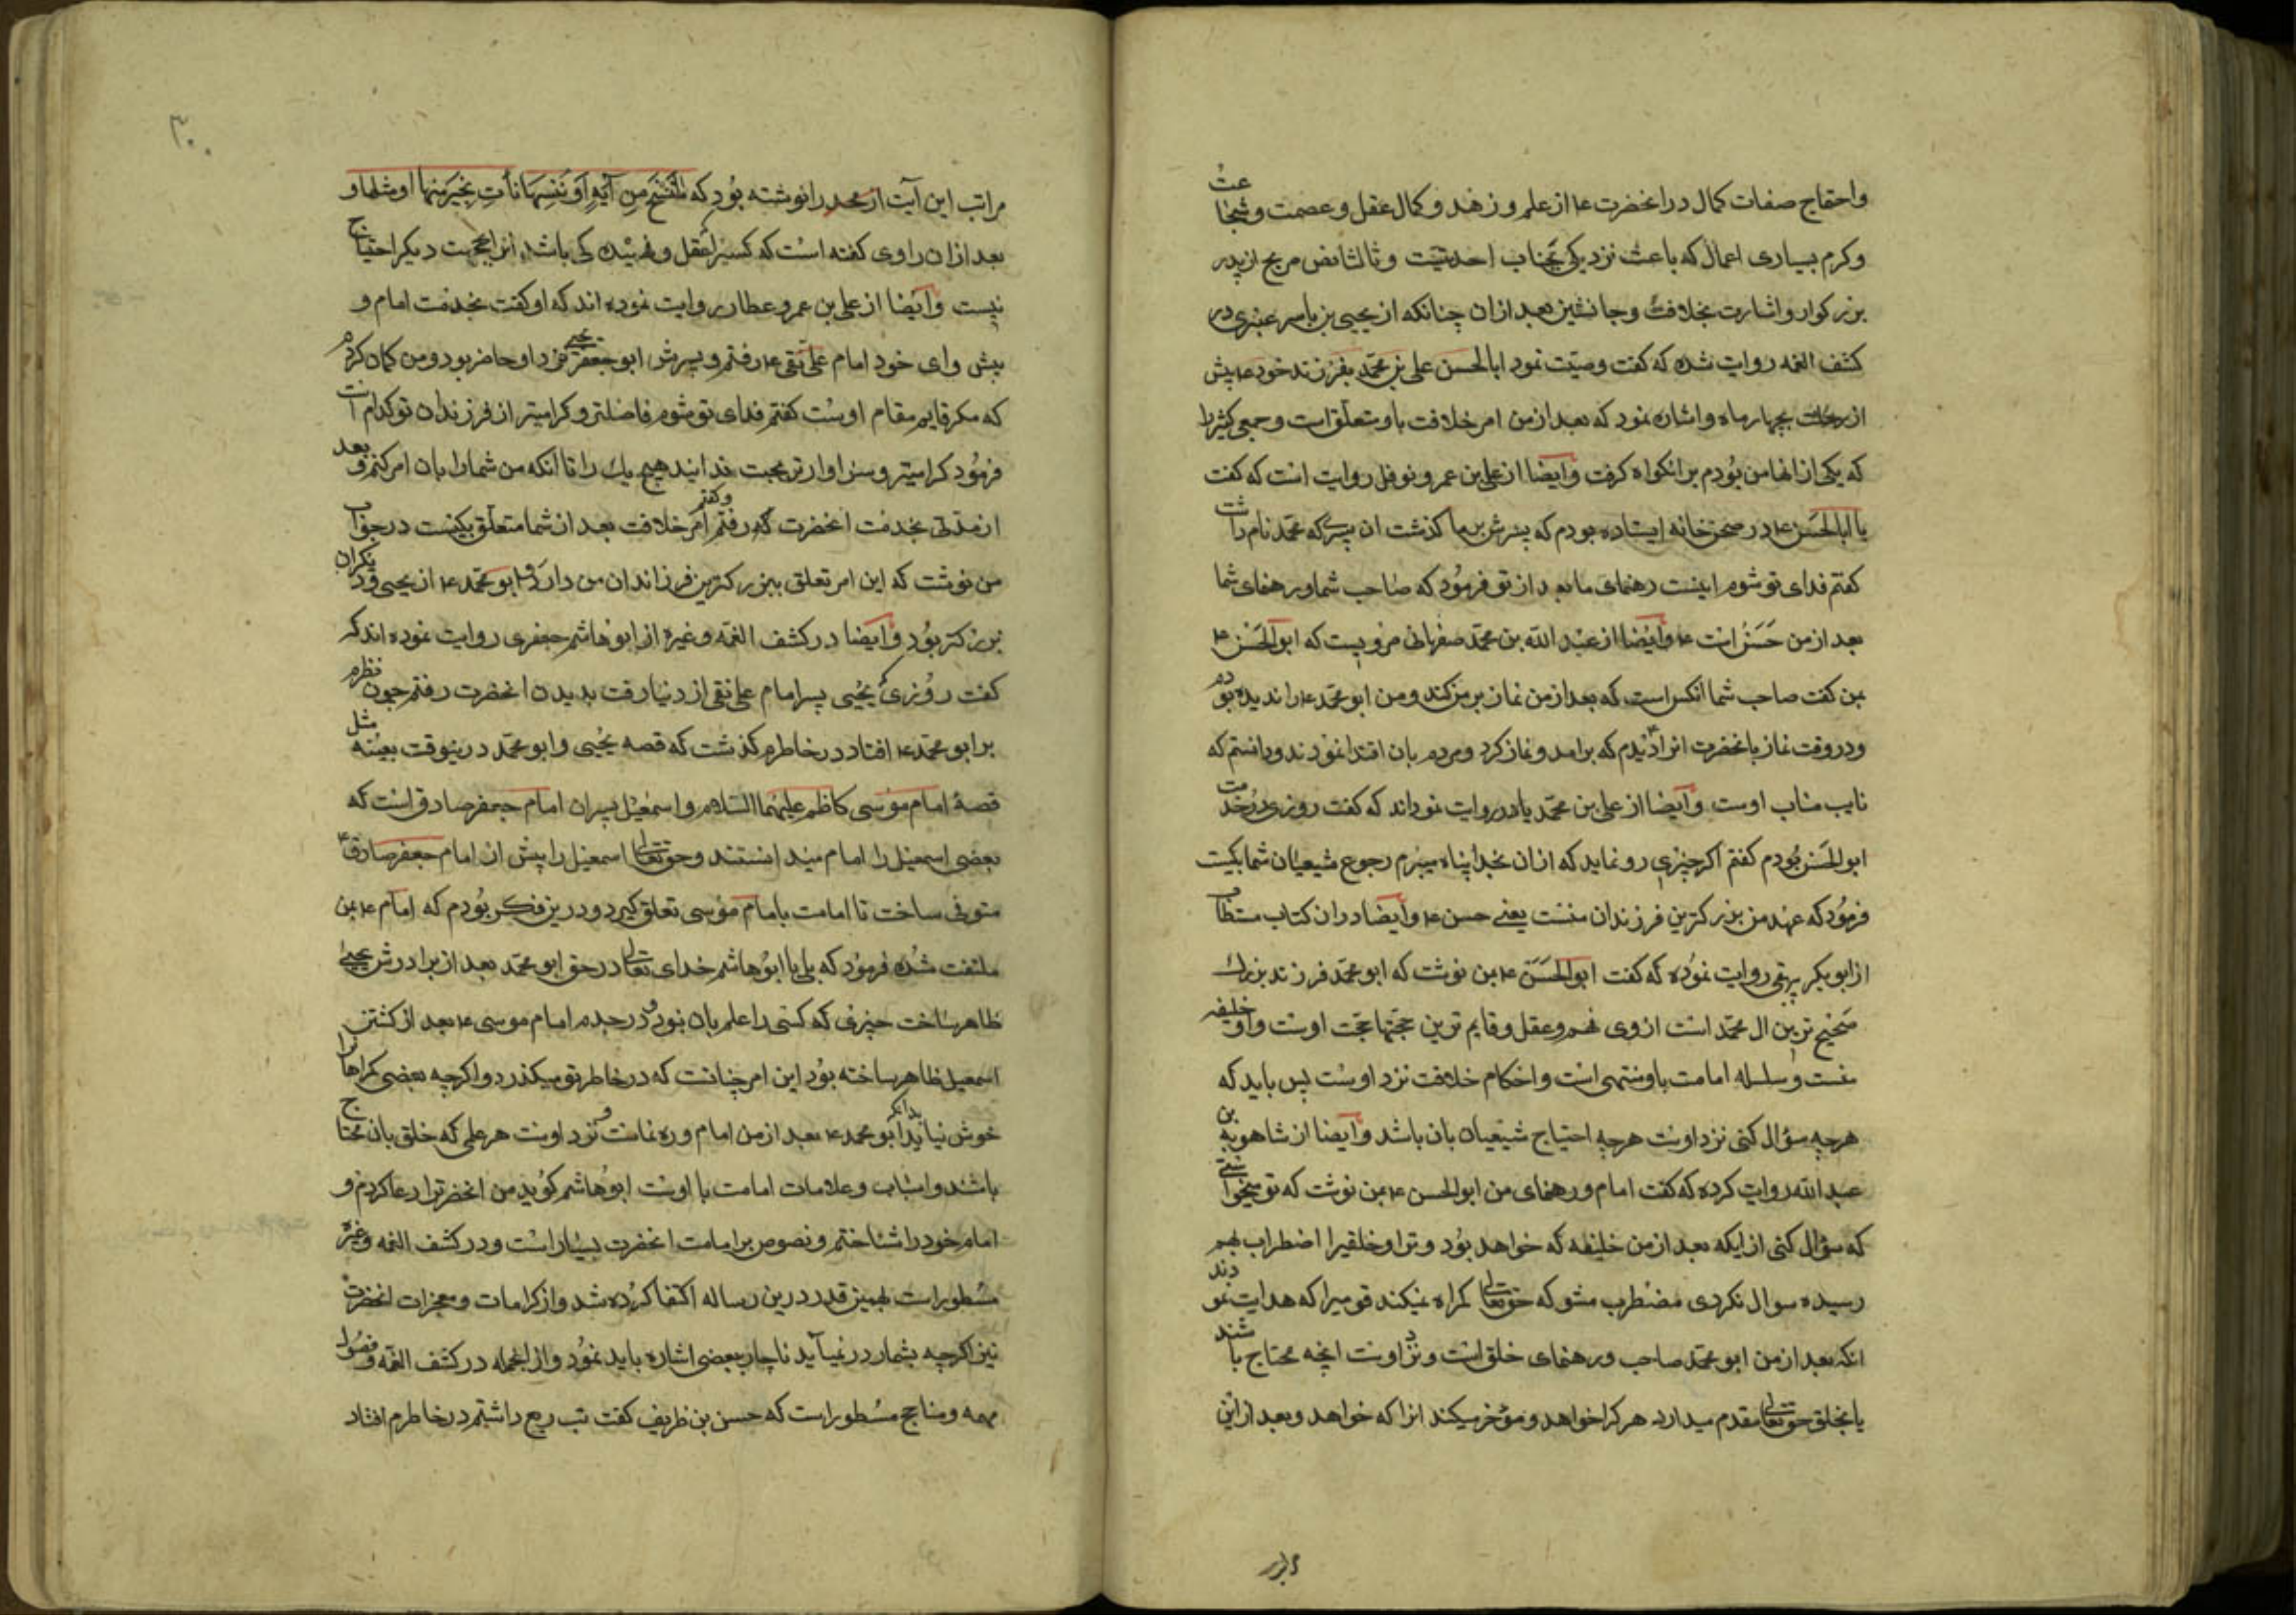 واحتیاج صفات کمال در انحضرت ع از علم و زهد و کمال عقل و عصمت و شجاعت
و کرم بسیاری اعمال که باعث نزدیکی بجناب احدیتست و ثالثا نص صریح از پدر
بزرکوار و اشارت بخلافت و جانشین بعد از ان چنانکه از یحیی بن یاسر عنبری در
کشف الغمه روایت شده که کفت وصیت نمود ابا الحسن علی بن محمد بفرزند خود ع پیش
از رحلت بچهار ماه و اشاره نمود که بعد از من امر خلافت باو متعلق است و جمعی کثیر را
که یکی از انها من بودم بر ان کواه کرفت و ایضا از علی بن عمرو نوفل روایت است که کفت
با ابا الحسن ع در صحن خانه ایستاده بودم که پسرش بر ما کذشت ان پسر که محمد نام داشت
کفتم فدای تو شوم اینست رهنمای ما بعد از تو فرمود که صاحب شما و رهنمای شما
بعد از من حسن است ع و ایضا از عبد الله بن محمد صفهانی مرویست که ابو الحسن ع
بمن کفت صاحب شما انکس است که بعد از من نماز بر من کند و من ابو محمد ع را ندیده بودم
و در وقت نماز بانحضرت انرا دیدم که برامد و نماز کرد و مردم بان اقتدا نمودند و دانستم که
نایب مناب اوست و ایضا از علی بن محمد یادر روایت نموداند که کفت روزی در خدمت
ابو الحسن بودم کفتم اکر چیزی رو نماید که از ان بخدا پناه میبرم رجوع شیعیان شما بکیست
فرمود که عهد من بزرکترین فرزندان منست یعنے حسن ع و ایضا در ان کتاب مستطاب
از ابو بکر بهقی روایت نموده که کفت ابو الحسن ع بمن نوشت که ابو محمد فرزند بزرک
صحیح ترین ال محمد است از وی فهم و عقل و قایم ترین حجتها حجت اوست و او خلیفه
منست و سلسله امامت باو منتهی است و احکام خلافت نزد اوست پس باید که
هر چه سؤال کنی نزد اوست هر چه احتیاج شیعیان بان باشد و ایضا از شاهویه بن
عبد الله روایت کرده که کفت امام و رهنمای من ابو الحسن ع بمن نوشت که تو میخواستی
که سؤال کنی از اینکه بعد از من خلیفه که خواهد بود و ترا و خلقیرا اضطراب بهم
رسیده سوال نکردی مضطرب مشو که حق تعالی کمراه نمیکند قومیرا که هدایت نمودند
انکه بعد از من ابو محمد صاحب و رهنمای خلق است و نزد اوست انچه محتاج باشند
یا بخلق حق تعالی مقدم میدارد هر کرا خواهد و مؤخر میکند انرا که خواهد و بعد از این
مراتب
۳۰
مراتب این آیت از محمد را نوشته بود که ما ننسخ من آیه او ننسها نأت بخیر منها او مثلها و
بعد از ان راوی کفته است که کسیرا عقل و فهمیده کی باشد از این حجت دیکر احتیاج
نیست و ایضا از علی بن عمرو عطار روایت نموده اند که او کفت بخدمت امام و
پیش وای خود امام علی نقی ع رفتم و پسرش ابو جعفر یحیی نزد او حاضر بود و من کمان کردم
که مکر قایم مقام اوست کفتم فدای تو شوم فاضلتر و کرامیتر از فرزندان تو کدام است
فرمود کرامیتر و سزاوارتر بمحبت خدایند هیچ یک را تا انکه من شما را بان امر کنم و بعد
از مدتی بخدمت انحضرت که رفتم و کفتم امر خلافت بعد از شما متعلق بکیست در جواب
من نوشت که این امر تعلق ببزرکترین فرزندان من دارد و ابو محمد ع از یحیی و دیکران
بزرکتر بود و ایضا در کشف الغمه و غیره از ابو هاشم جعفری روایت نموده اند که
کفت روزی که یحیی پسر امام علی نقی از دنیا رفت بدیدن انحضرت رفتم چون نظرم
بر ابو محمد ع افتاد در خاطرم کذشت که قصه یحیی و ابو محمد در ینوقت بعینه مثل
قصهٔ امام موسی کاظم علیهما السلام و اسمعیل پسران امام جعفر صادق است که
بعضی اسمعیل را امام میدانستند و حق تعالی اسمعیل را پیش از امام جعفر صادق ع
متوفی ساخت تا امامت بامام موسی تعلق کیرد و در ین فکر بودم که امام ع بمن
ملتفت شده فرمود که بلی یا ابو هاشم خدای تعالی در حق ابو محمد بعد از برادرش یحیی
ظاهر ساخت چیزی که کسی را علم بان نبود و در جدم امام موسی ع بعد از کشتن
اسمعیل ظاهر ساخته بود این امر چنانست که در خاطر تو میکذرد و اکر چه بعضی کمراهانرا
خوش نیاید بدانکه ابو محمد ع بعد از من امام و ره نماست و نزد اوست هر علمی که خلق بان محتاج
باشند و اسباب و علامات امامت با اوست ابو هاشم کوید من انحضرترا دعا کردم و
امام خود را شناختم و نصوص بر امامت انحضرت بسیار است و در کشف الغمه و غیره
مسطور است بهمین قدر درین رساله اکتفا کرده شد و از کرامات و معجزات انحضرت
نیز اکرچه بشمار در نمیآید ناچار ببعضی اشاره باید نمود و از انجمله در کشف الغمه و فصول
مهمه و مناهج مسطور است که حسن بن ظریف کفت تب ربع داشتم در خاطرم افتاد